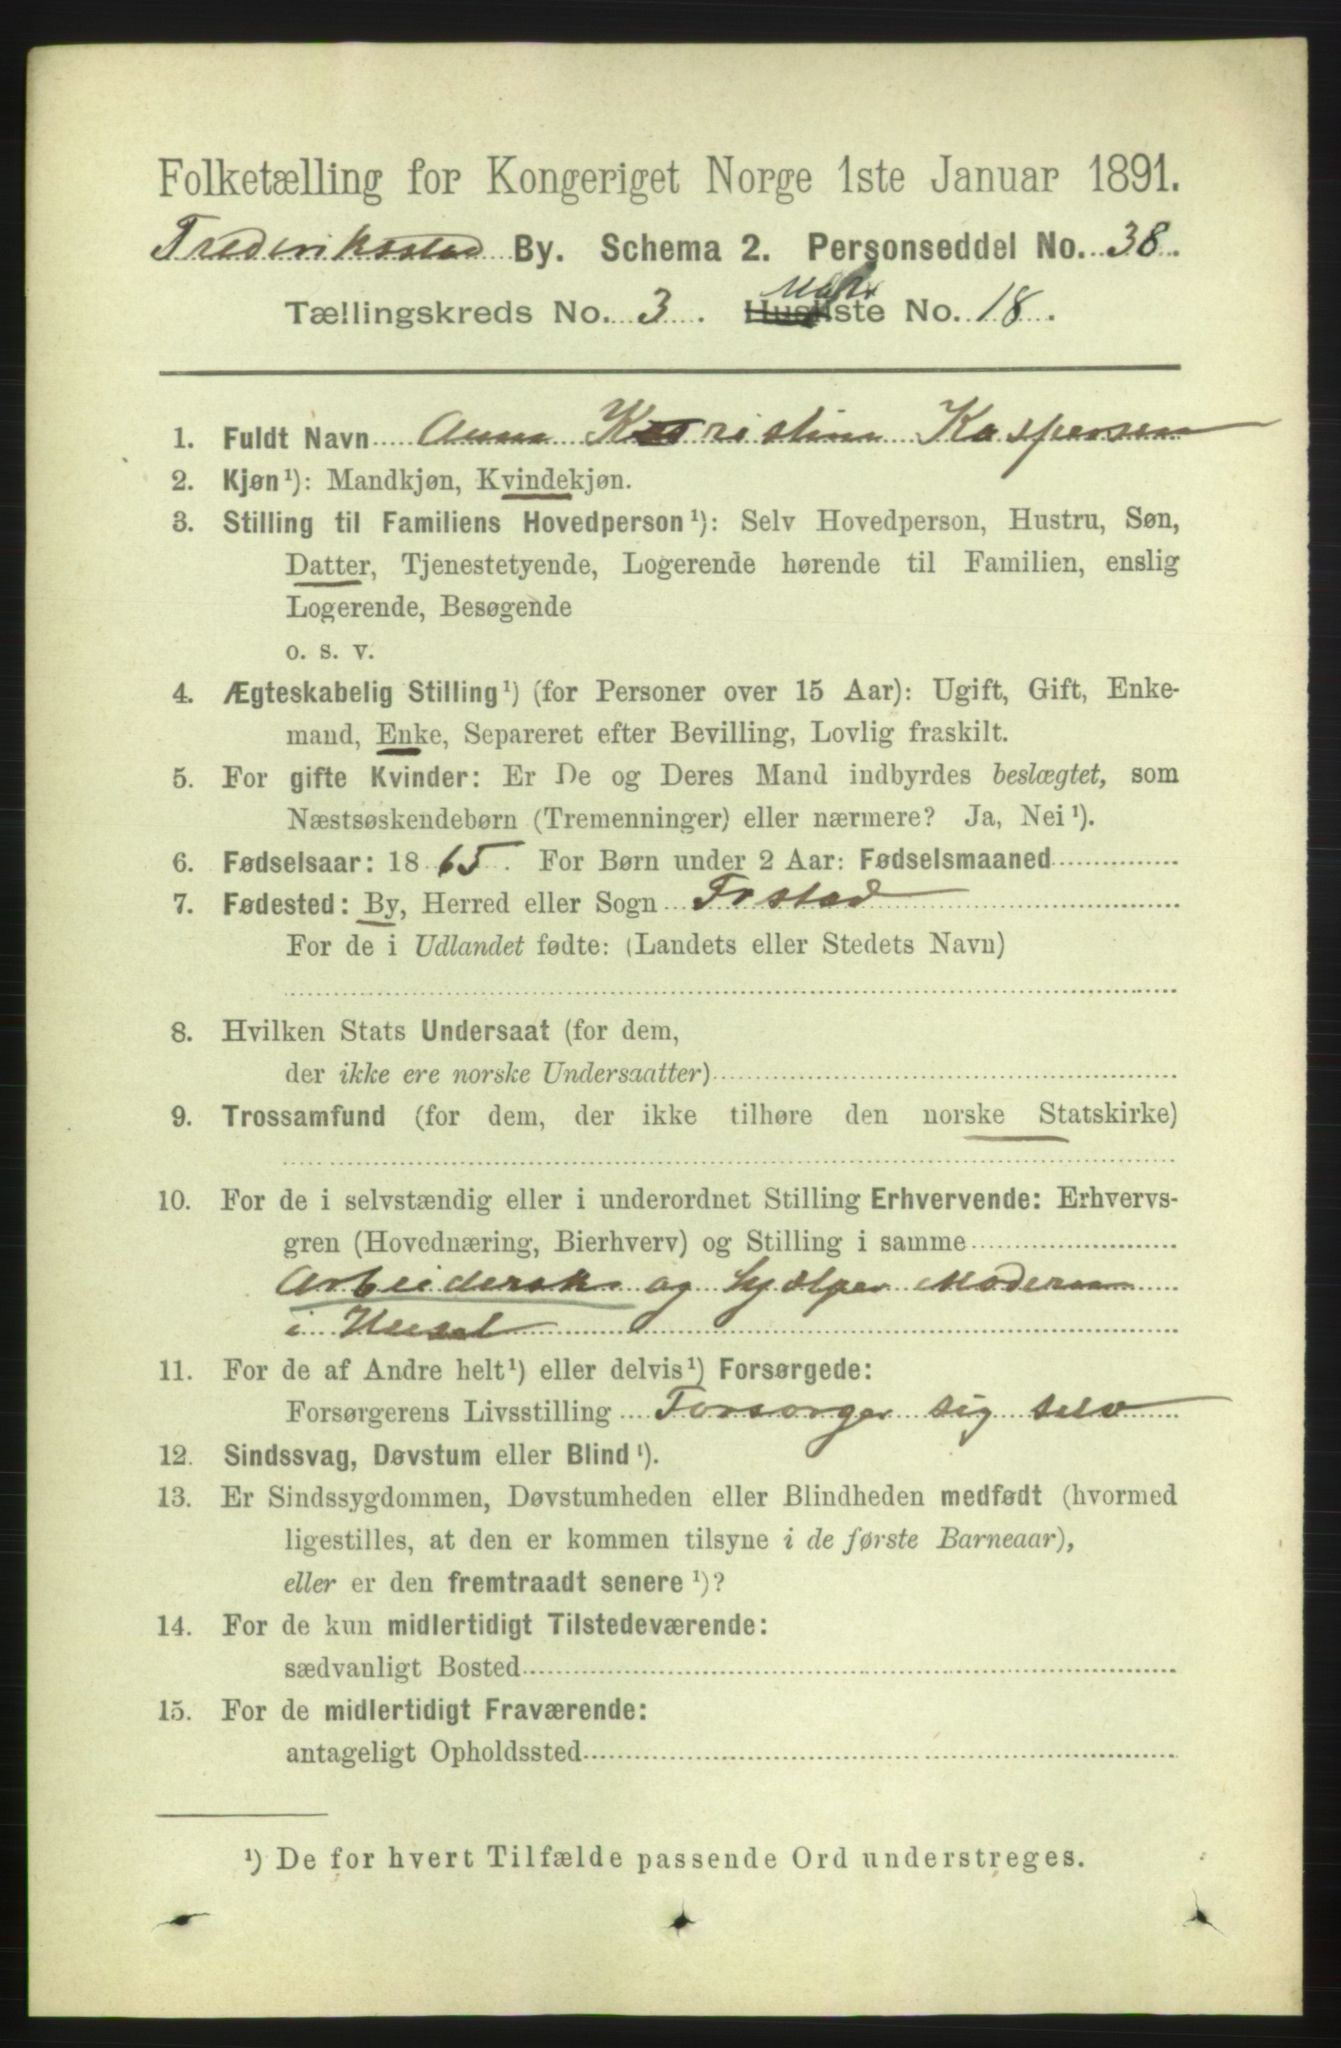 Folketælling for Kongeriget Norge 1ste Januar 1891.
Frederiksstad By. Schema 2. Personseddel No. 38.
Tællingskreds No. 3. Husliste No. 18.
1. Fuldt Navn Anna Kristine Kaspersen
2. Kjøn¹): Mandkjøn, Kvindekjøn.
3. Stilling til Familiens Hovedperson¹): Selv Hovedperson, Hustru, Søn,
Datter, Tjenestetyende, Logerende hørende til Familien, enslig
Logerende, Besøgende
o. s. v.
4. Ægteskabelig Stilling¹) (for Personer over 15 Aar): Ugift, Gift, Enke-
mand, Enke, Separeret efter Bevilling, Lovlig fraskilt.
5. For gifte Kvinder: Er De og Deres Mand indbyrdes beslægtet, som
Næstsøskendebørn (Tremenninger) eller nærmere? Ja, Nei¹).
6. Fødselsaar: 1865. For Børn under 2 Aar: Fødselsmaaned
7. Fødested: By, Herred eller Sogn Frstad
For de i Udlandet fødte: (Landets eller Stedets Navn)
8. Hvilken Stats Undersaat (for dem,
der ikke ere norske Undersaatter)
9. Trossamfund (for dem, der ikke tilhøre den norske Statskirke)
10. For de i selvstændig eller i underordnet Stilling Erhvervende: Erhvervs-
gren (Hovednæring, Bierhverv) og Stilling i samme
Arbeiderske og hjælper Moderen
i Huset
11. For de af Andre helt¹) eller delvis¹) Forsørgede:
Forsørgerens Livsstilling Forsorger sig selv
12. Sindssvag, Døvstum eller Blind¹).
13. Er Sindssygdommen, Døvstumheden eller Blindheden medfødt (hvormed
ligestilles, at den er kommen tilsyne i de første Barneaar),
eller er den fremtraadt senere¹)?
14. For de kun midlertidigt Tilstedeværende:
sædvanligt Bosted
15. For de midlertidigt Fraværende:
antageligt Opholdssted
¹) De for hvert Tilfælde passende Ord understreges.